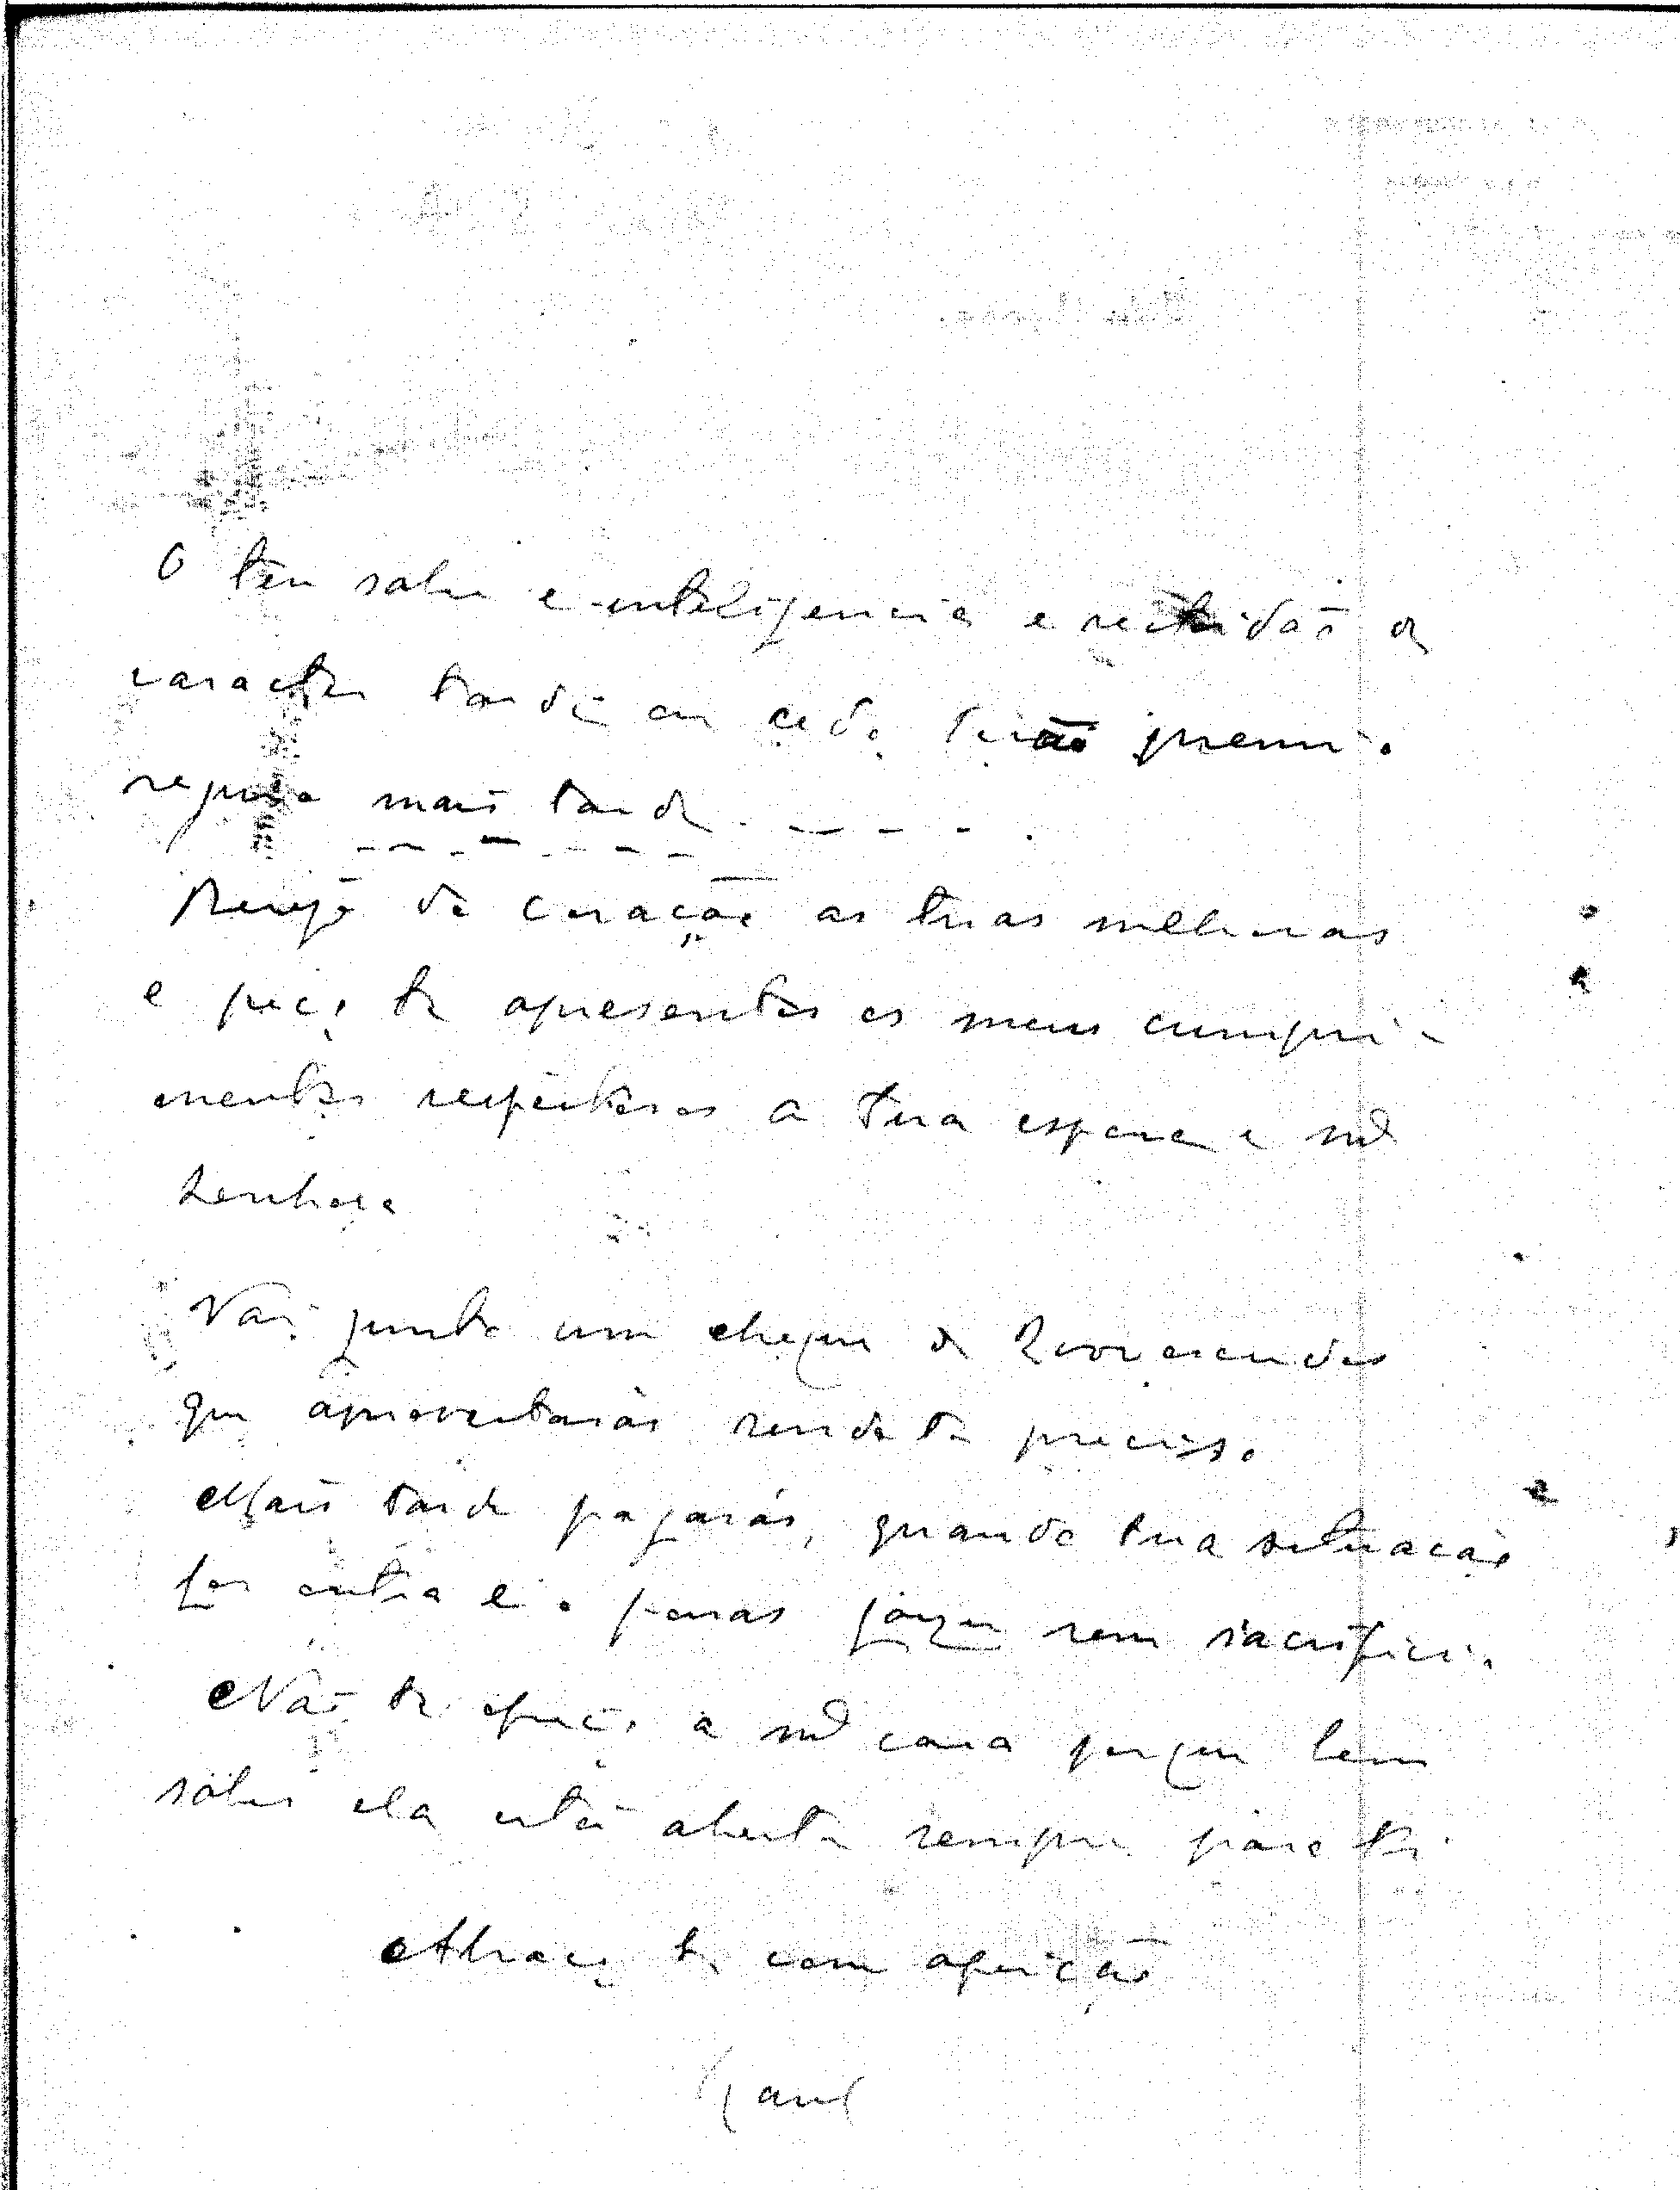 O teu saber e inteligencia e rectidão de
caracter tarde ou cedo terão premio
mais tarde
Desejo de coração as tuas melhoras
e peço te apresentes os meus cumpri-
mentos respeitosos a tua esposa e mª
Senhora
Vai junto um cheque de escudos
que aproveitarás sendo te preciso
Mais tarde pagarás, quando tua situação
for outra e o possas fazer sem sacrificio
Não te ofereço a mª casa porque bem
sabes ela está aberta sempre para ti
Abraço te com afeição